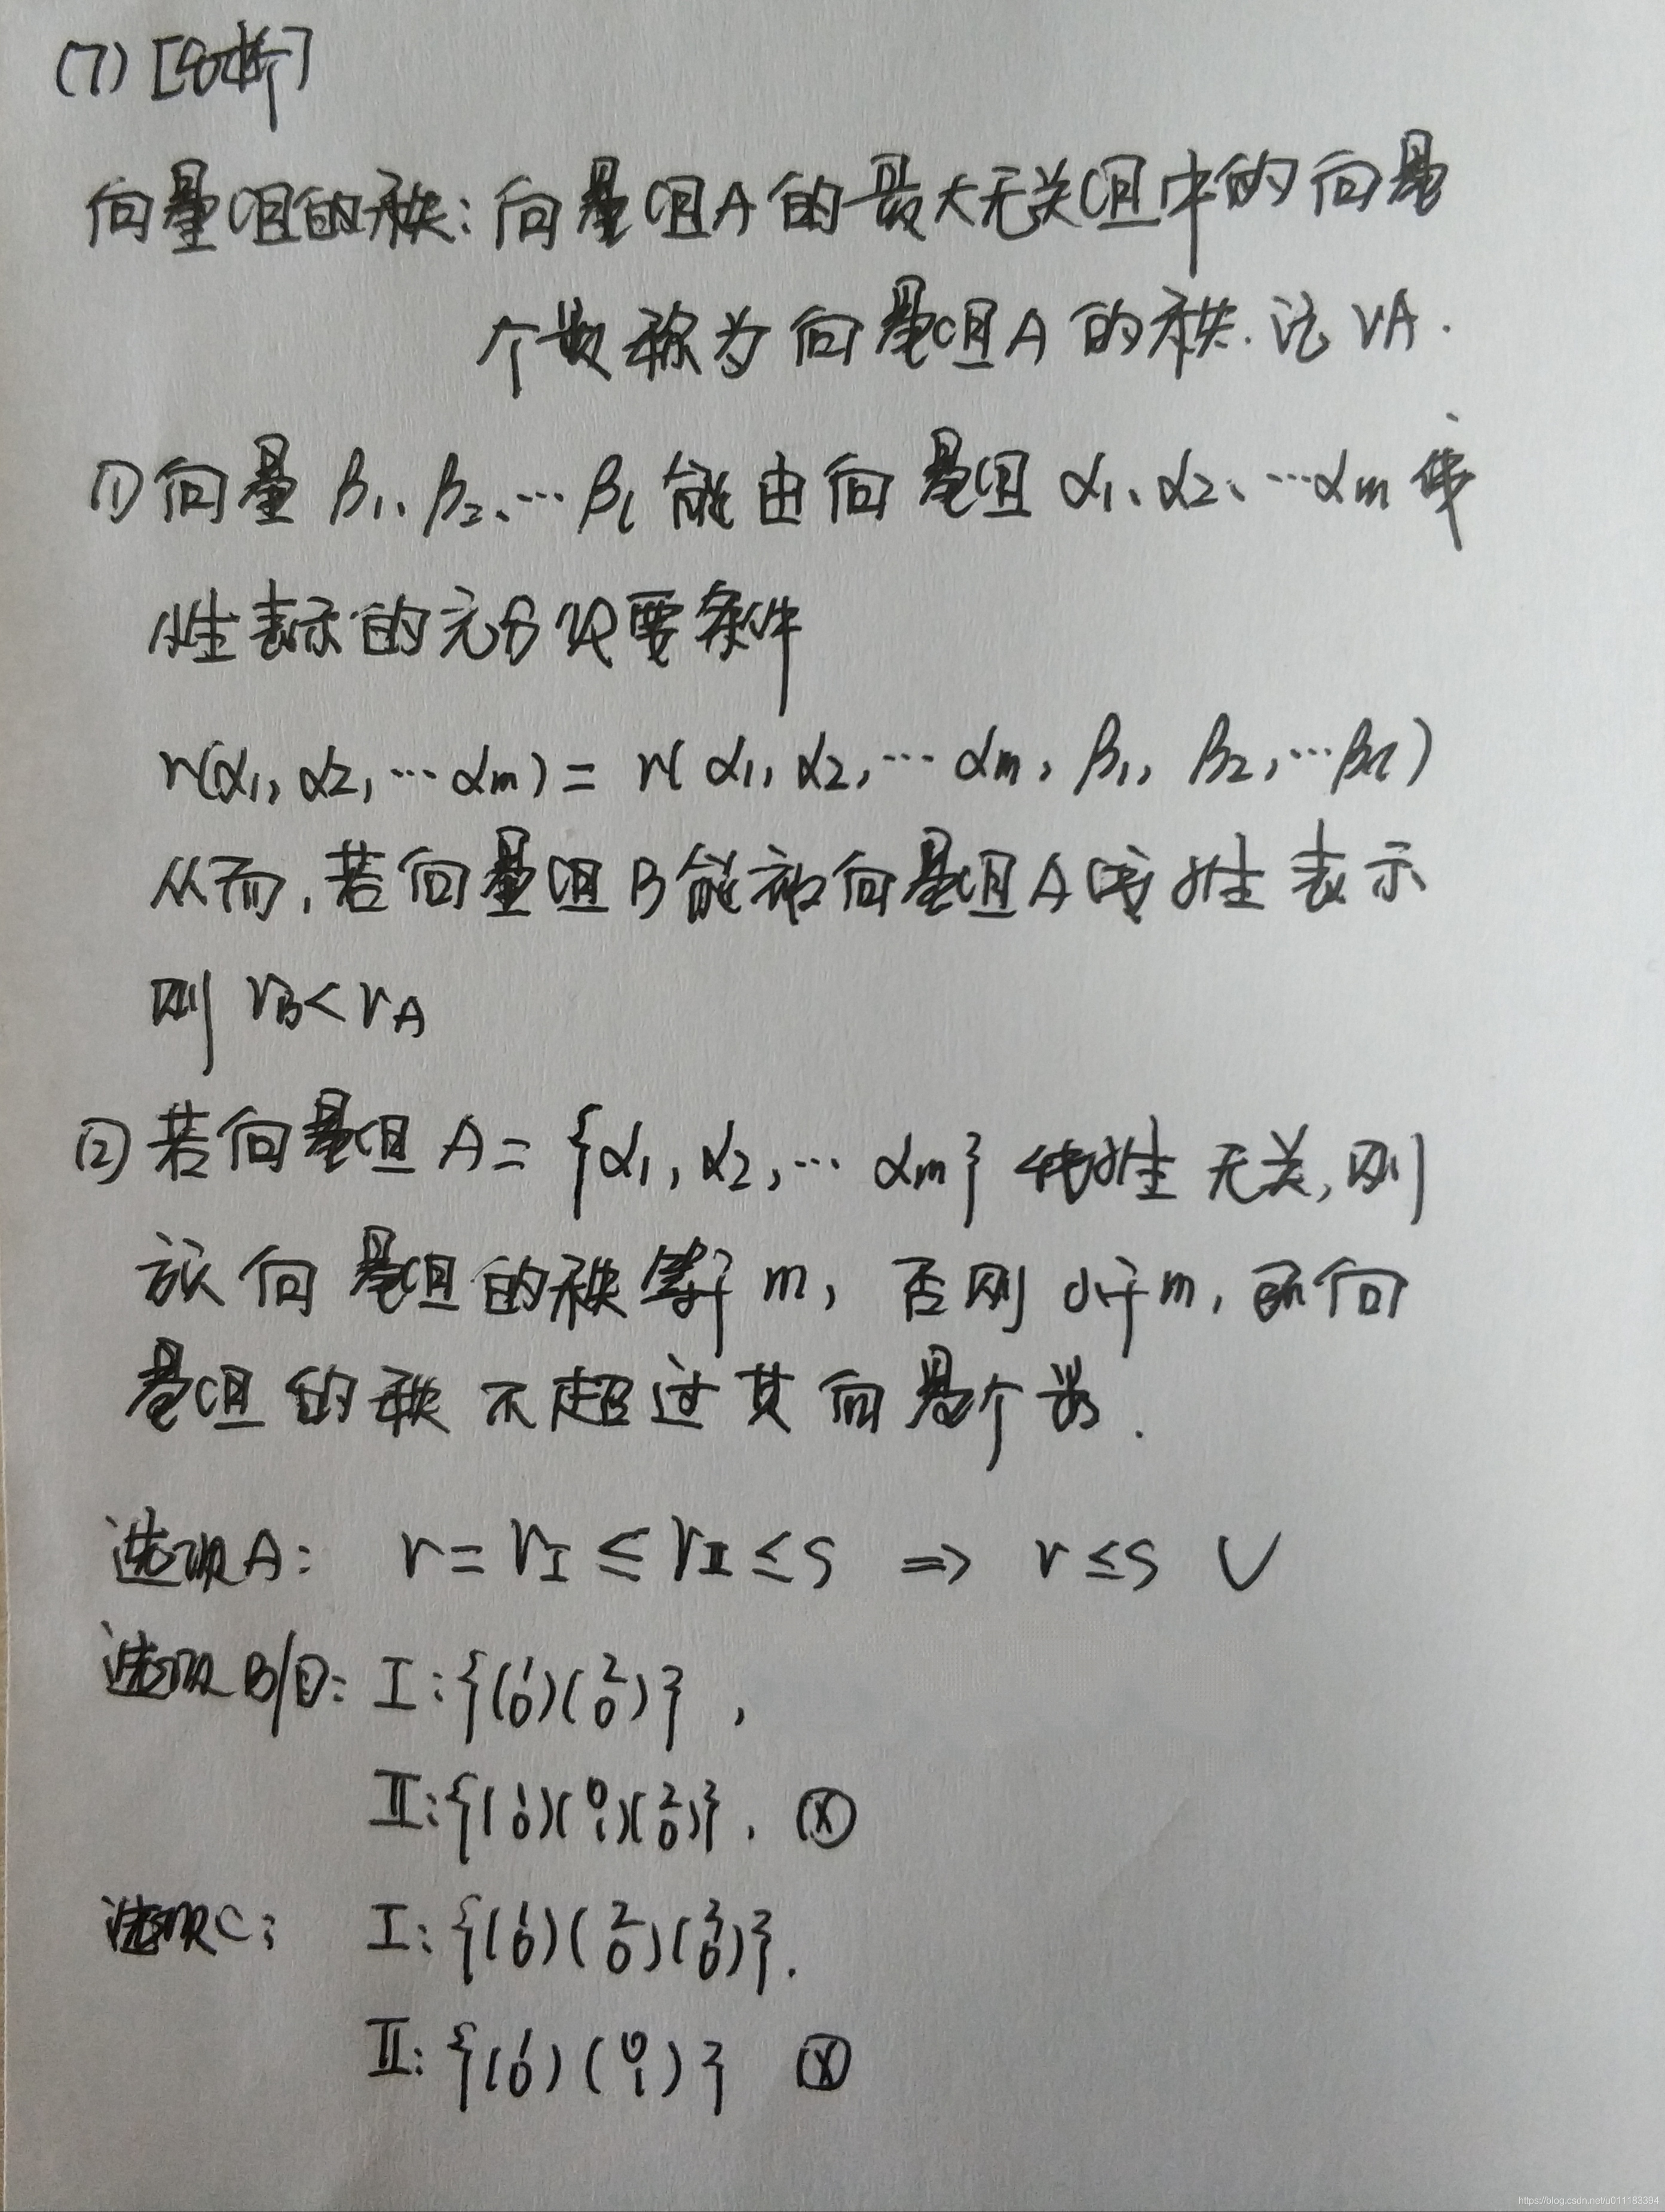 (7) [分析]
向量组的秩:向量组A的最大无关组中的向量
个数称为向量组A的秩.记rA.
①向量 β1、β2、…βl 能由向量组 α1、α2、…αm 线
性表示的充分必要条件
r(α1, α2, … αm) = r( α1, α2, … αm, β1, β2, … βl )
从而,若向量组B能被向量组A线性表示
则 rB < rA
② 若向量组 A = {α1, α2, … αm} 线性无关,则
该向量组的秩等于m, 否则小于m,
量组的秩不超过其向量个数.
选项A: r = rⅠ ≤ rⅡ ≤ s ⇒ r ≤ s √
选项B/D: Ⅰ:{(1 0)(2 0)},
Ⅱ:{(1 0)(0 1)(2 0)}. ⓧ
选项C: Ⅰ:{(1 0)(2 0)(3 0)}.
Ⅱ:{(1 0)(0 1)} ⓧ
https://blog.csdn.net/u011183394